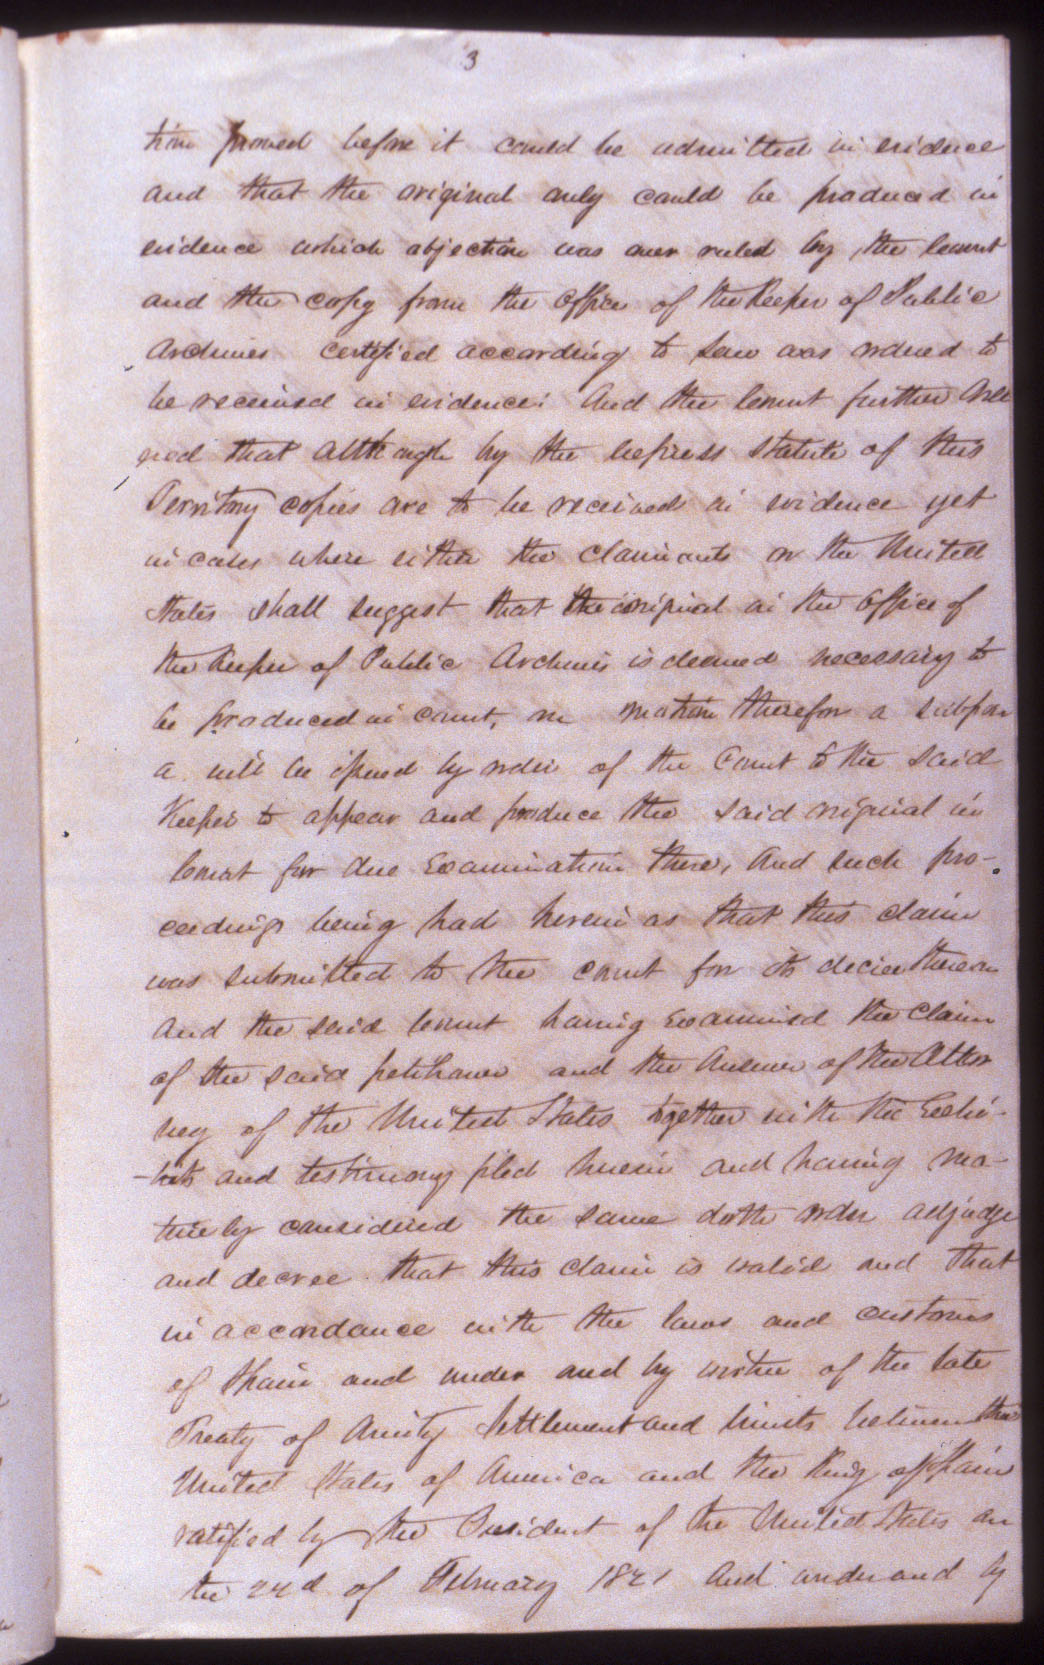 3
tion proved before it could be admitted in evidence
and that the original only could be produced in
evidence which objection was over ruled by the Court
and the copy from the office of the Keeper of Public
Archives certified according to law was ordered to
be received in evidence: And the Court further Orde
red that although by the express statute of this
Territory copies are to be received in evidence yet
in cases where either the claimants or the United
States shall suggest that the original in the Office of
the Keeper of Public Archives is deemed necessary to
be produced in court, on motion therefor a subpoe
a will be issued by order of the Court to the said
Keeper to appear and produce the said original in
Court for due Examination there, And such pro-
ceedings being had herein as that this claim
was submitted to the court for its decree thereon
And the said Court having Examined the Claim
of the said petitioner and the Answer of the Attor
ney of the United States together with the Exhi-
-bits and testimony filed herein and having ma-
turely considered the same doth order adjudge
and decree that this claim is valid and that
in accordance with the laws and customs
of Spain and under and by virtue of the late
Treaty of Amity Settlement and limits between the
United States of America and the King of Spain
ratified by the President of the United States on
the 22d of February 1821 And under and by